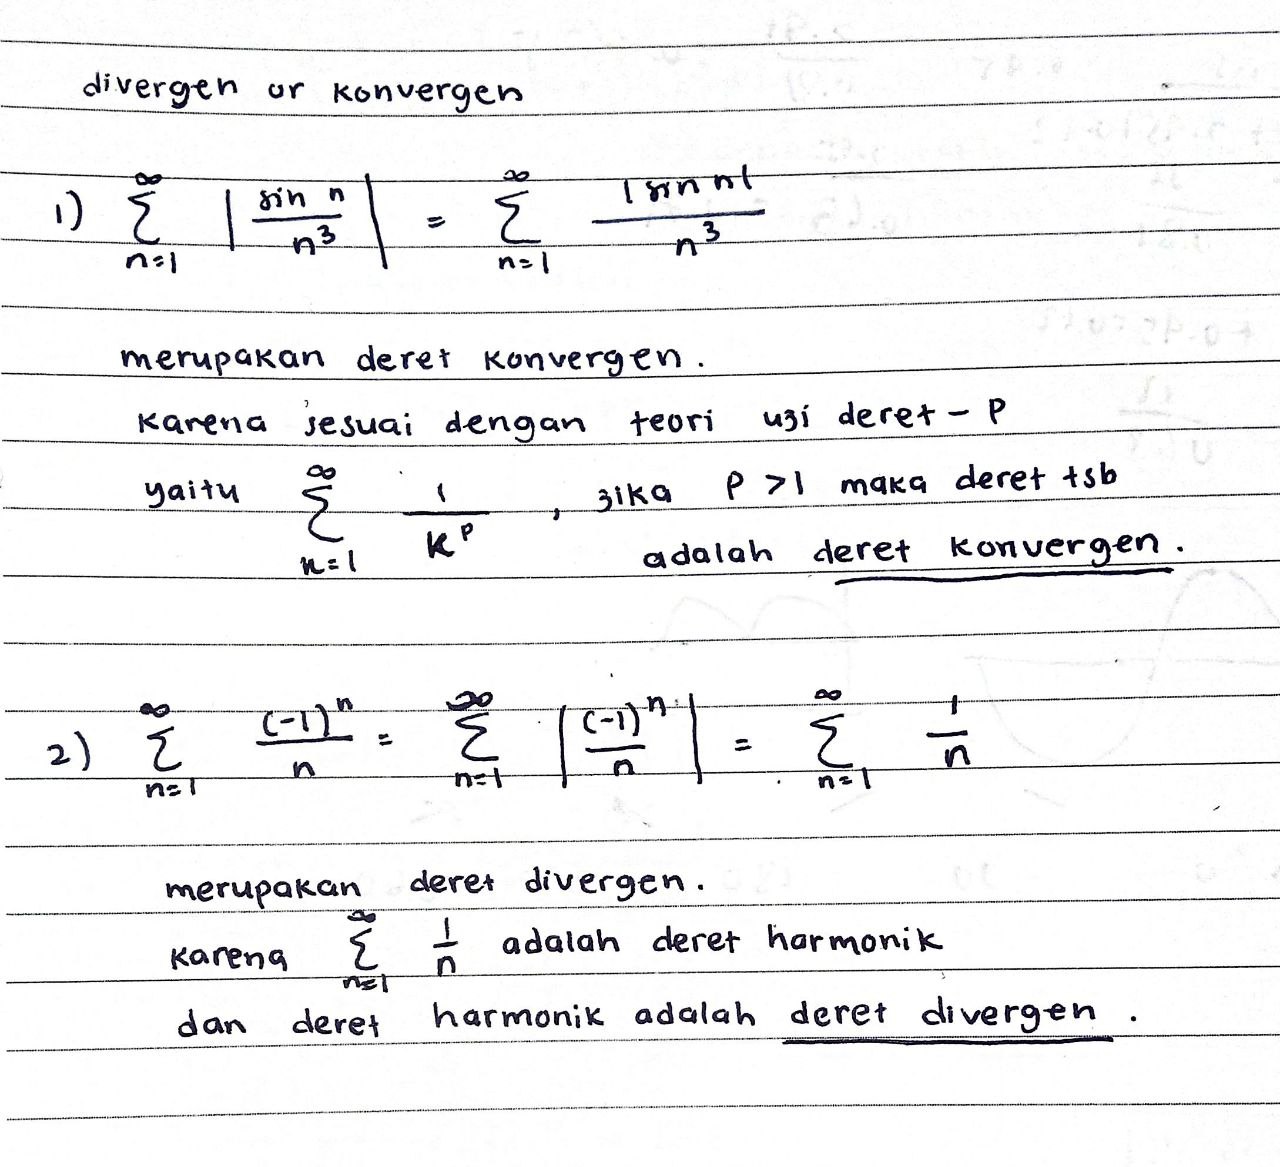 divergen or konvergen
1) ∞ Σ n=1 | sin n / n³ | = ∞ Σ n=1 |sin n| / n³
merupakan deret konvergen.
karena sesuai dengan teori uji deret - P
yaitu ∞ Σ n=1 1 / k^p , jika P > 1 maka deret tsb
adalah deret konvergen.
2) ∞ Σ n=1 (-1)^n / n = ∞ Σ n=1 | (-1)^n / n | = ∞ Σ n=1 1 / n
merupakan deret divergen.
karena ∞ Σ n=1 1 / n adalah deret harmonik
dan deret harmonik adalah deret divergen.